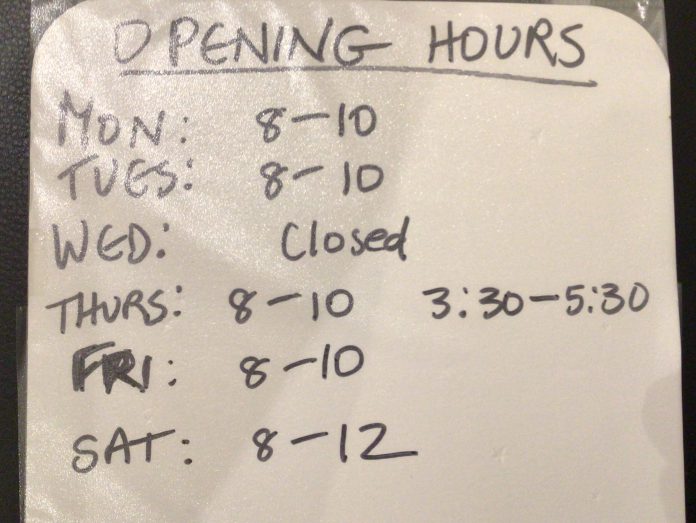 OPENING HOURS
MON: 8-10
TUES: 8-10
WED: Closed
THURS: 8-10 3:30-5:30
FRI: 8-10
SAT: 8-12